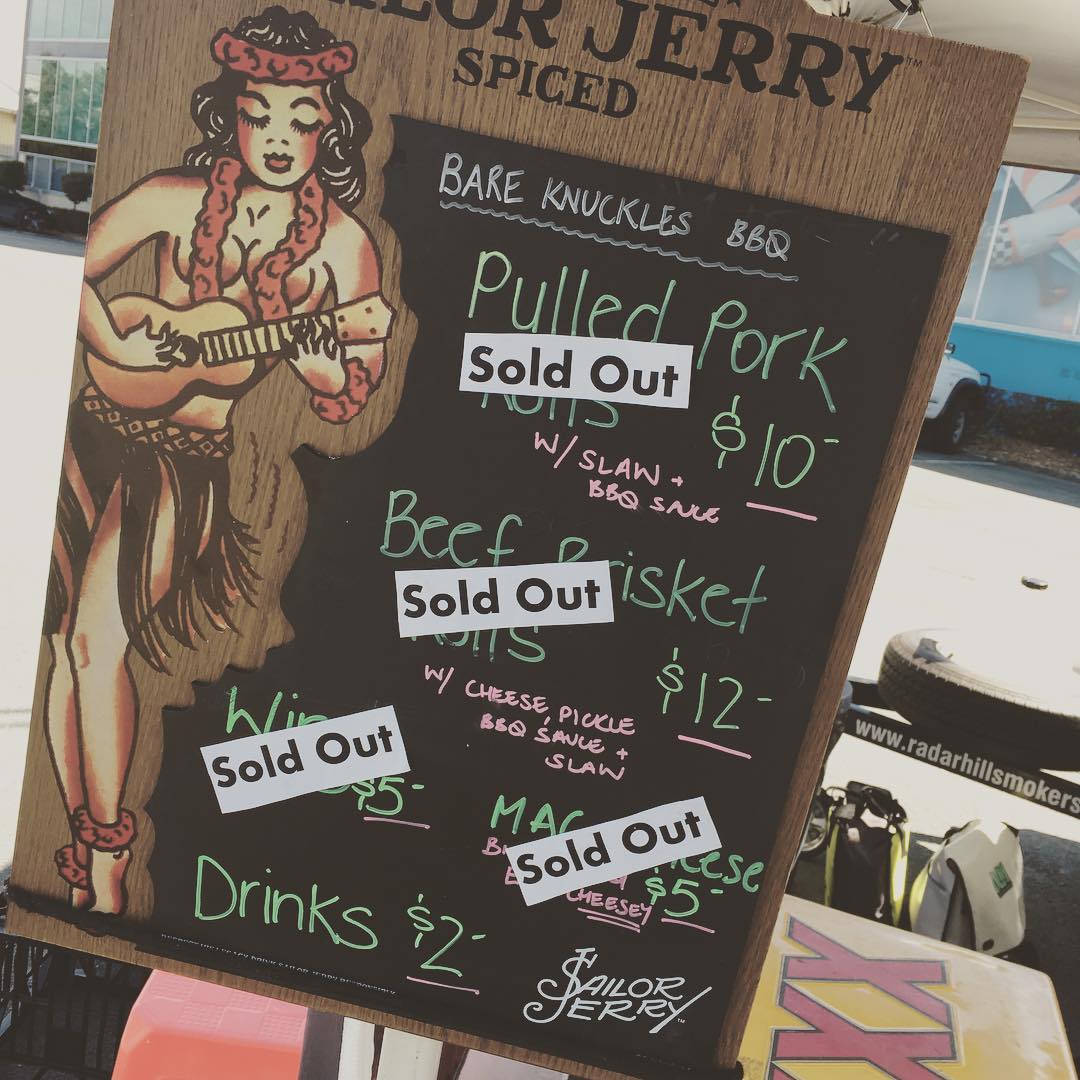 SAILOR JERRY™
SPICED
BARE KNUCKLES BBQ
Pulled Pork
Sold Out
Rolls
$10-
W/ SLAW +
BBQ SAUCE
Beef Brisket
Sold Out
Rolls
$12-
W/ CHEESE, PICKLE
BBQ SAUCE +
SLAW
Sold Out
$5-
MAC
Sold Out
Cheese
CHEESEY $5-
Drinks $2-
SAILOR
JERRY
www.radarhillsmokers
XXX